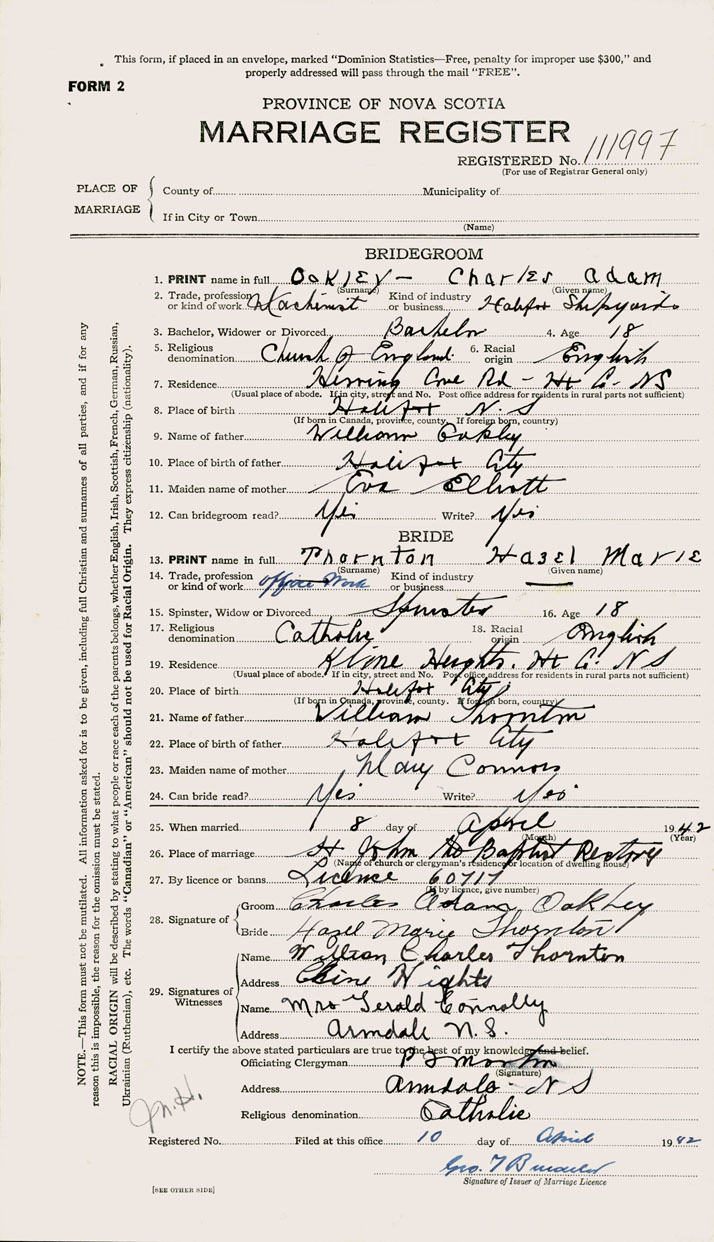 This form, if placed in an envelope, marked "Dominion Statistics—Free, penalty for improper use $300," and
properly addressed will pass through the mail "FREE".
FORM 2
PROVINCE OF NOVA SCOTIA
MARRIAGE REGISTER
REGISTERED No. 111997
(For use of Registrar General only)
PLACE OF MARRIAGE
County of Municipality of
If in City or Town
(Name)
BRIDEGROOM
1. PRINT name in full Oakley - Charles Adam
(Surname) (Given name)
2. Trade, profession or kind of work Machinist Kind of industry or business Halifax Shipyards
3. Bachelor, Widower or Divorced Bachelor 4. Age 18
5. Religious denomination Church of England 6. Racial origin English
7. Residence Herring Cove Rd - Hx Co. NS
(Usual place of abode. If in city, street and No. Post office address for residents in rural parts not sufficient)
8. Place of birth Halifax N.S
(If born in Canada, province, county. If foreign born, country)
9. Name of father William Oakley
10. Place of birth of father Halifax City
11. Maiden name of mother Eva Elliott
12. Can bridegroom read? Yes Write? Yes
BRIDE
13. PRINT name in full Thornton Hazel Marie
(Surname) (Given name)
14. Trade, profession or kind of work office Work Kind of industry or business
15. Spinster, Widow or Divorced Spinster 16. Age 18
17. Religious denomination Catholic 18. Racial origin English
19. Residence Kline Heights. Hx Co. NS
(Usual place of abode. If in city, street and No. Post office address for residents in rural parts not sufficient)
20. Place of birth Halifax City
(If born in Canada, province, county. If foreign born, country)
21. Name of father William Thornton
22. Place of birth of father Halifax City
23. Maiden name of mother Mary Connors
24. Can bride read? Yes Write? Yes
25. When married 8 day of April 1942
(Month) (Year)
26. Place of marriage St John the Baptist Rectory
(Name of church or clergyman's residence or location of dwelling house)
27. By licence or banns Licence 60717
(If by licence, give number)
28. Signature of
Groom Charles Adam Oakley
Bride Hazel Marie Thornton
29. Signatures of Witnesses
Name William Charles Thornton
Address Cline Hights
Name Mrs Gerald Connolly
Address Armdale N.S.
I certify the above stated particulars are true to the best of my knowledge and belief.
Officiating Clergyman
(Signature)
Address Armdale - NS
Religious denomination Catholic
Registered No. Filed at this office 10 day of April 1942
Geo. T
Signature of Issuer of Marriage Licence
[SEE OTHER SIDE]
NOTE.—This form must not be mutilated. All information asked for is to be given, including full Christian and surnames of all parties, and if for any
reason this is impossible, the reason for the omission must be stated.
RACIAL ORIGIN will be described by stating to what people or race each of the parents belongs, whether English, Irish, Scottish, French, German, Russian,
Ukrainian (Ruthenian), etc. The words "Canadian" or "American" should not be used for Racial Origin. They express citizenship (nationality).